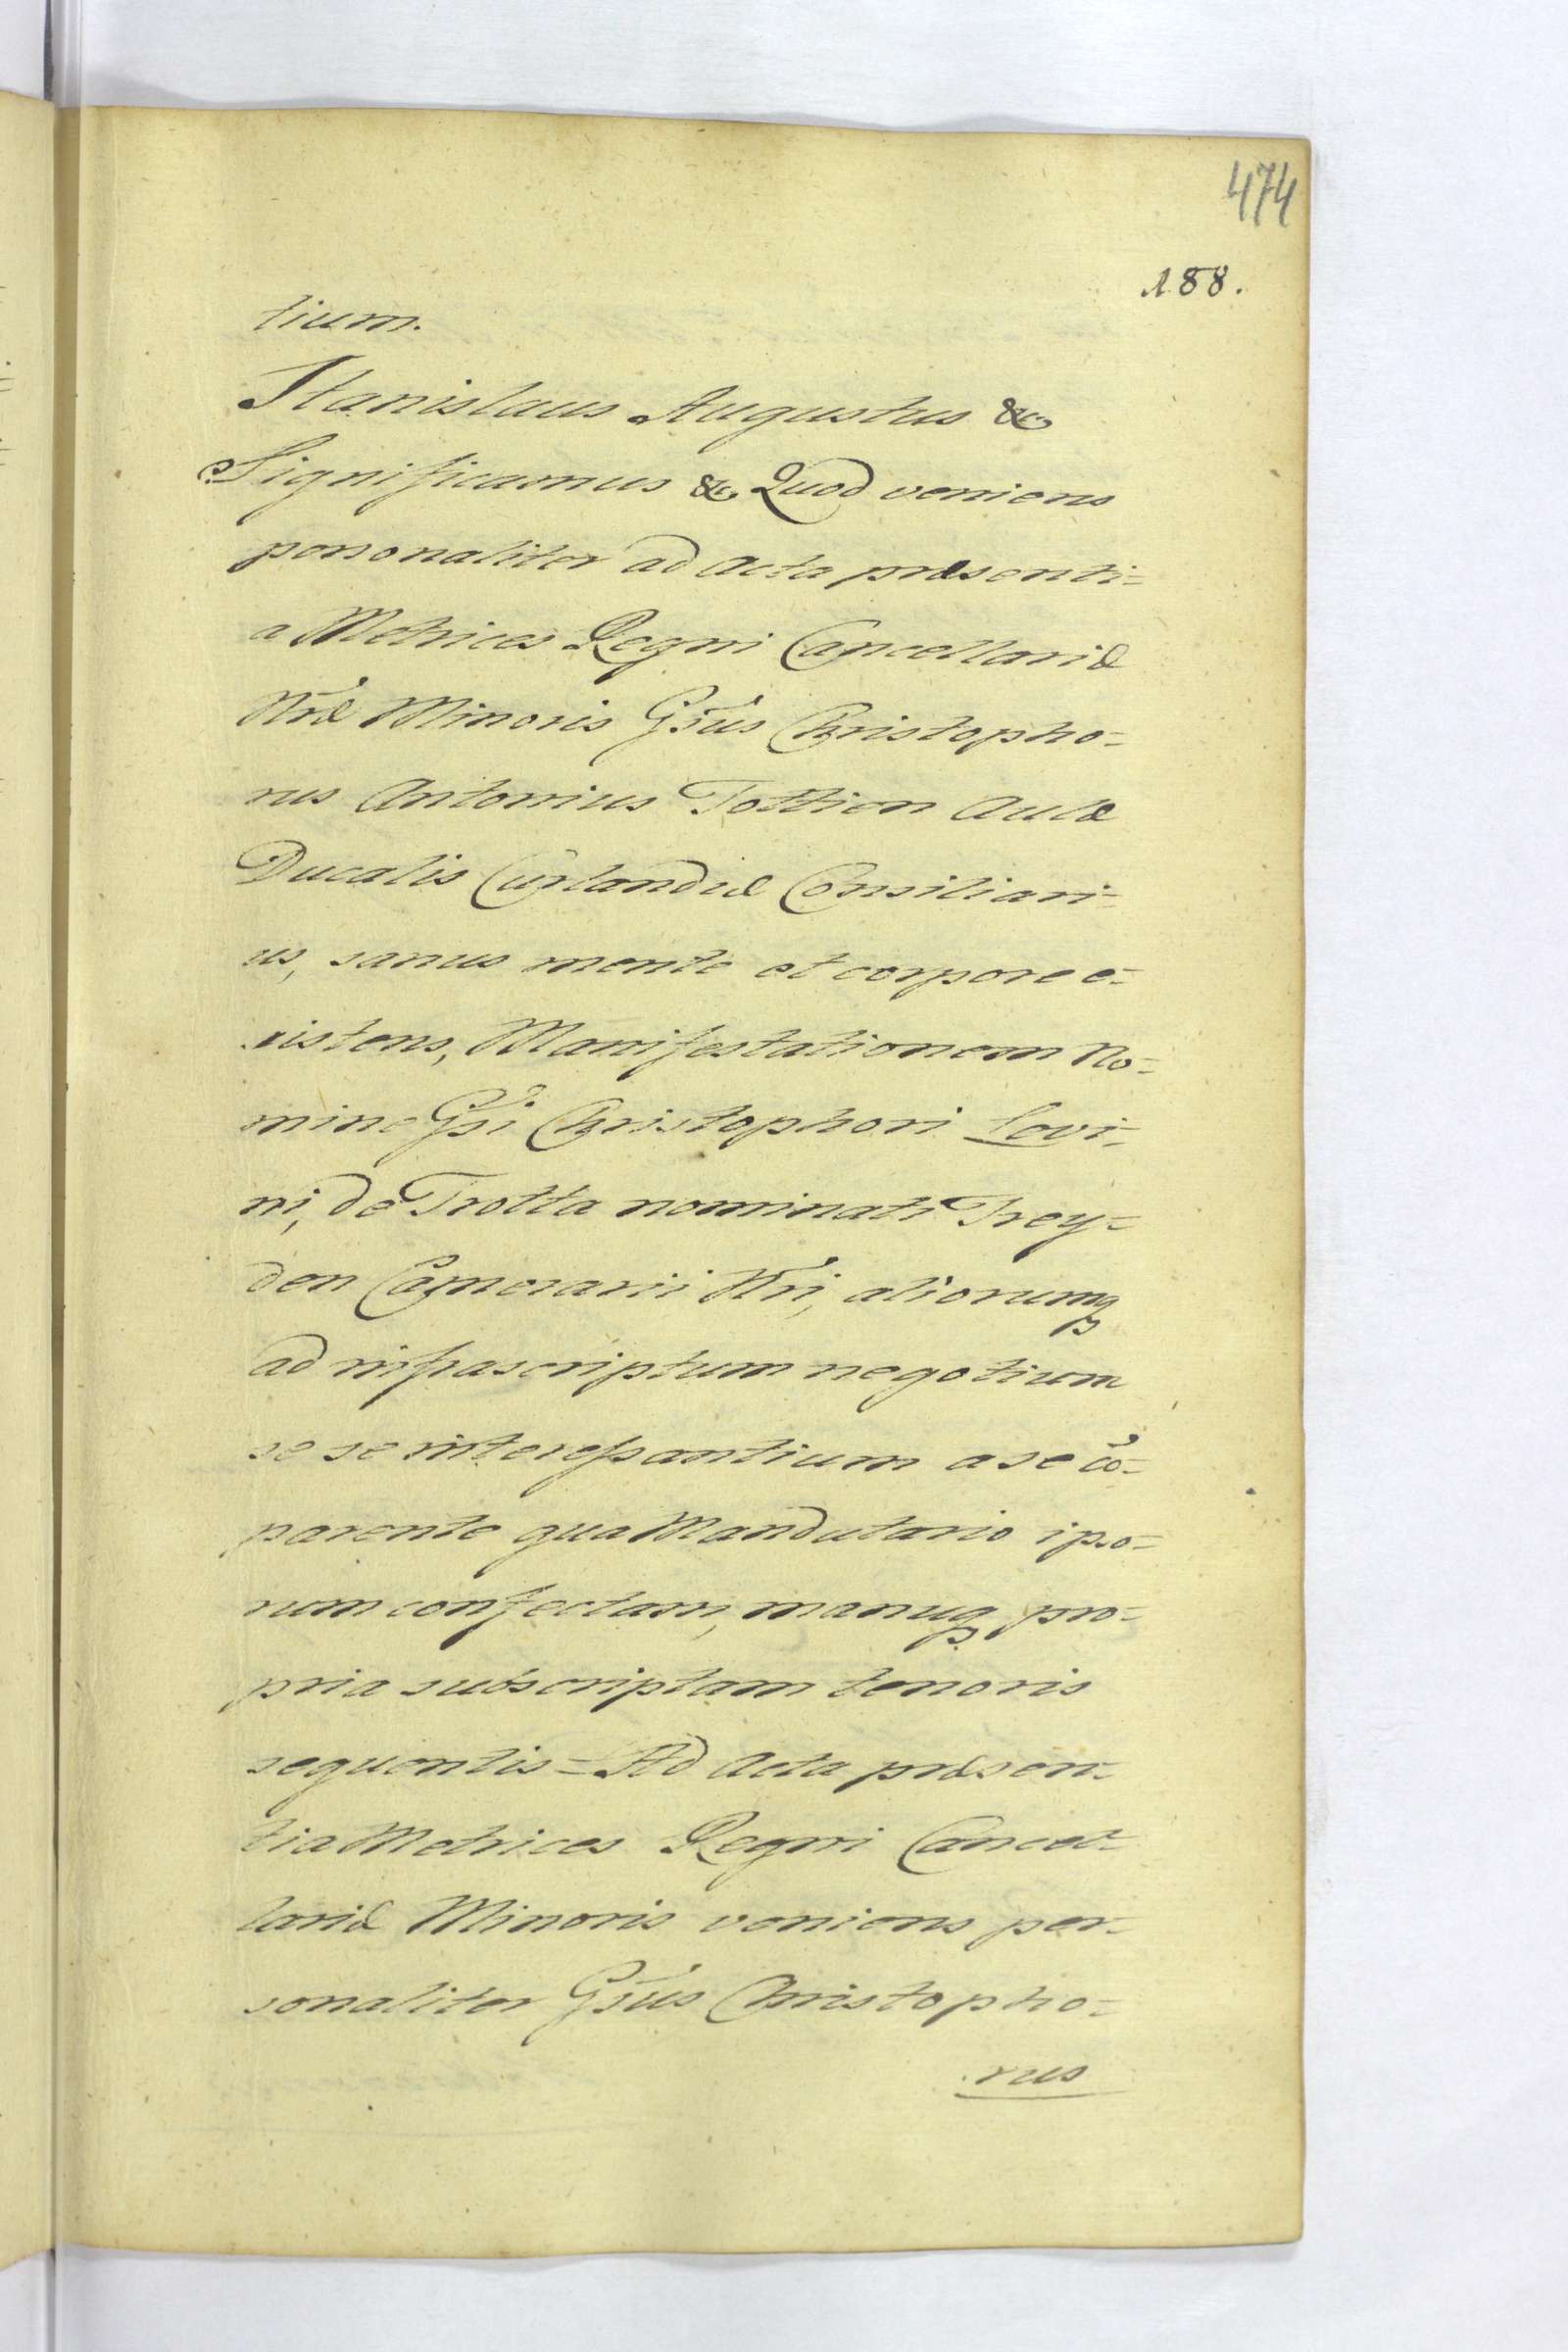 474
188.
tium.
Stanislaus Augustus &c
Significamus &c Quod veniens
personaliter ad Acta præsenti=
a Metrices Regni Cancellariæ
Nr̃æ Minoris Gsũs Christopho=
rus Antonius Tottien Aulæ
Ducalis Curlandiæ Consiliari=
us, sanus mente et corpore e=
xistens, Manifestationem No=
mine Gsĩ Christophori Levi=
ni, de Trotta nominati Trey=
den Camerarii Nr̃i, aliorumq
ad infrascriptum negotium
se se interessantium a se cõ=
parente qua Mandatario ipso=
rum confectam, manuq pro=
pria subscriptam tenoris
sequentis = Ad Acta præsen=
tia Metrices Regni Cancel=
lariæ Minoris veniens per=
sonaliter Gsũs Christopho=
rus